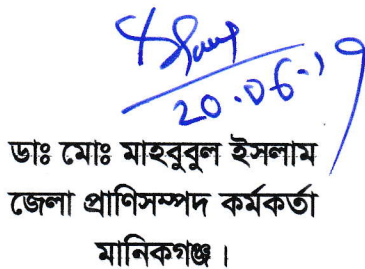 20.06.19
ডাঃ মোঃ মাহবুবুল ইসলাম
জেলা প্রাণিসম্পদ কর্মকর্তা
মানিকগঞ্জ।